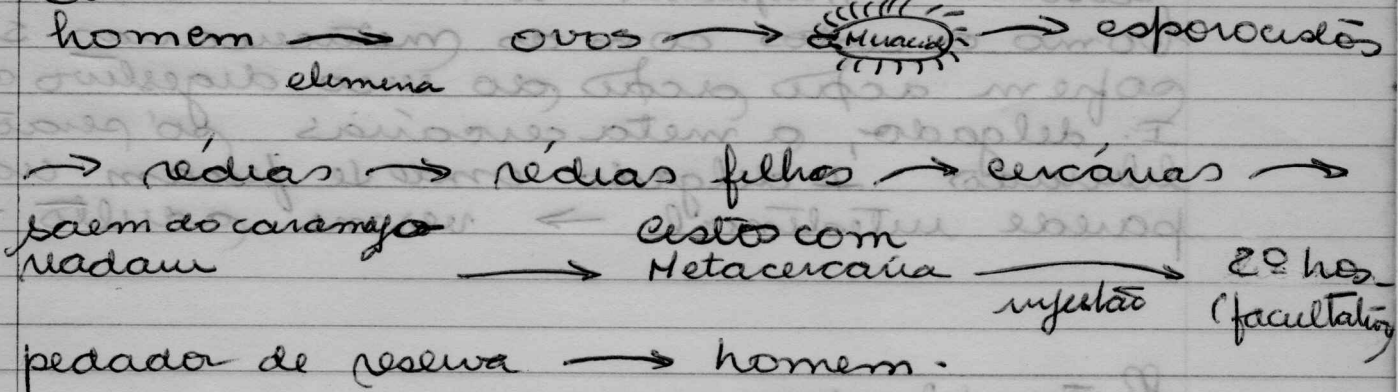 homem → ovos → Miracid → esporocistos
elimina
→ rédias → rédias filhas → cercárias →
saem do caramujo cistos com
nadam → Metacercaria → 2º hos-
ingestão (facultativo)
pedador de reserva → homem.